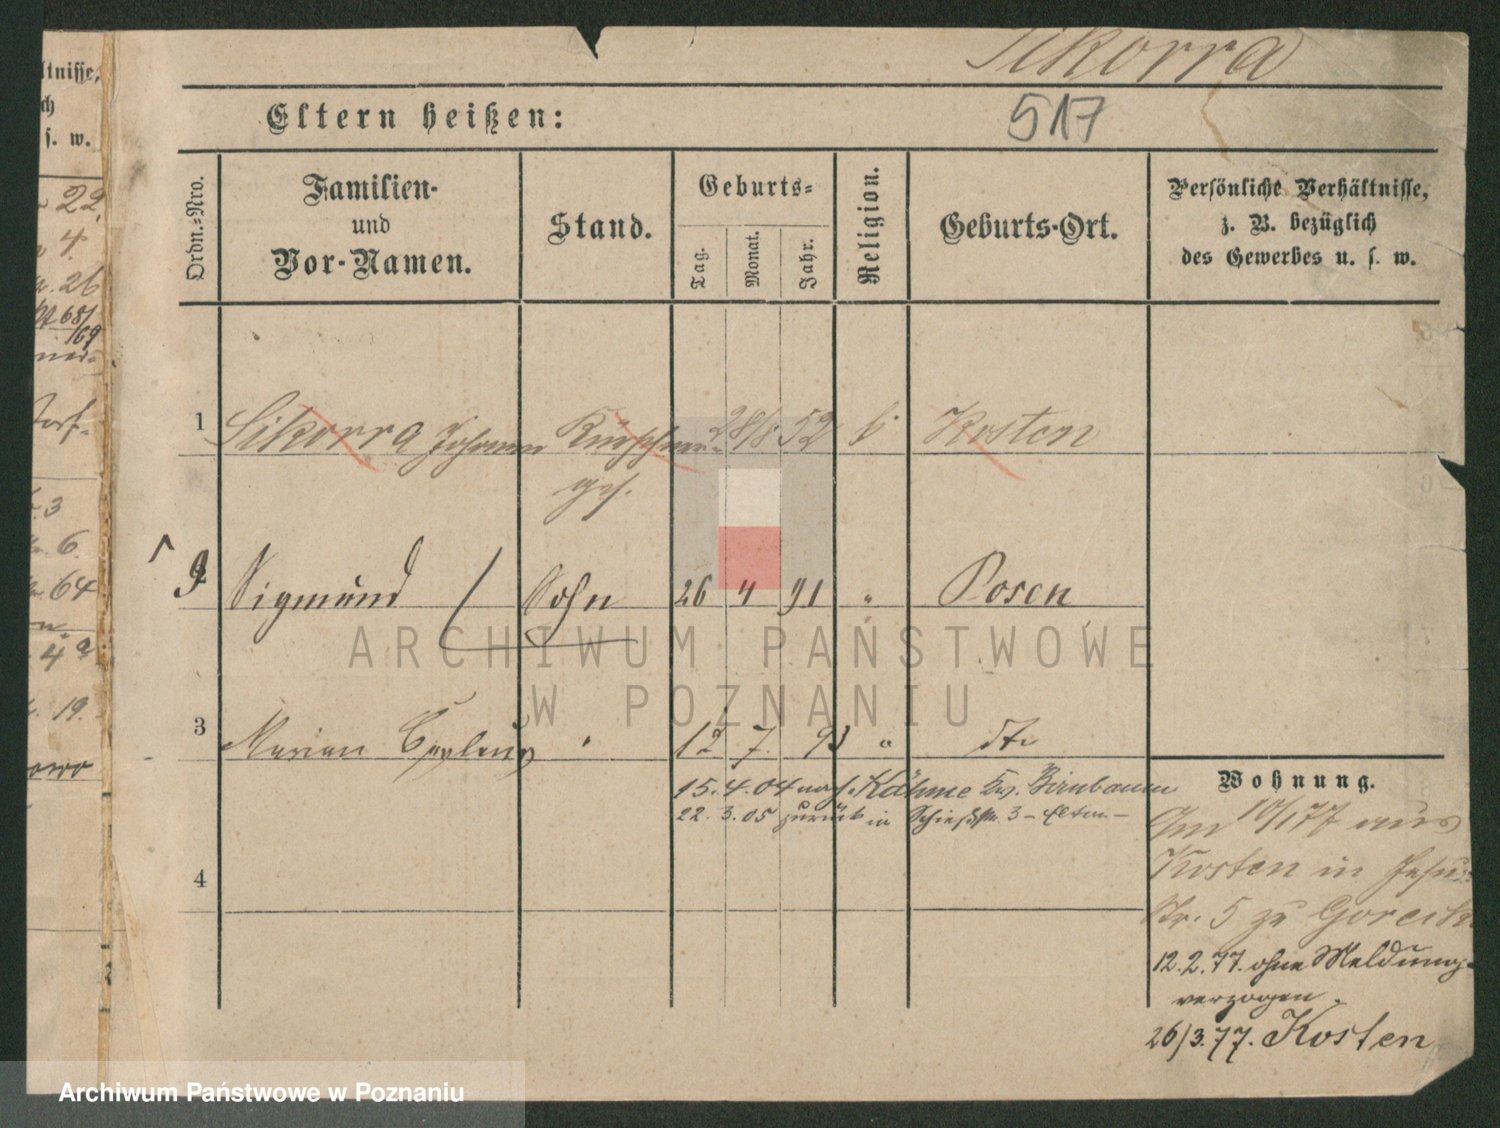 ltnisse,
ch
s. w.
22,
4.
26
681
169
3
6.
64
4
19.
Sikorra
Eltern heißen:
517
Ordn.-Nro.
Familien-
und
Vor-Namen.
Stand.
Geburts-
Tag.
Monat.
Jahr.
Religion.
Geburts-Ort.
Persönliche Verhältnisse,
z. B. bezüglich
des Gewerbes u. s. w.
1 Sikorra Johann Kürschner 28/8 52 k Kosten
ges.
2 Sigmund Sohn 26 4 91 " Posen
ARCHIWUM PAŃSTWOWE
W POZNANIU
3 Marian " 12 7. 93 " dto
15.4.04 nach Kähme Krs. Birnbaum
22.3.05 zurück in Schießstr. 3 - Eltern -
4
Wohnung.
Am 10/1 77 aus
Kosten in Jesu
Str. 5 zu
12.2.77. ohne Meldung
verzogen.
26/3.77. Kosten
Archiwum Państwowe w Poznaniu